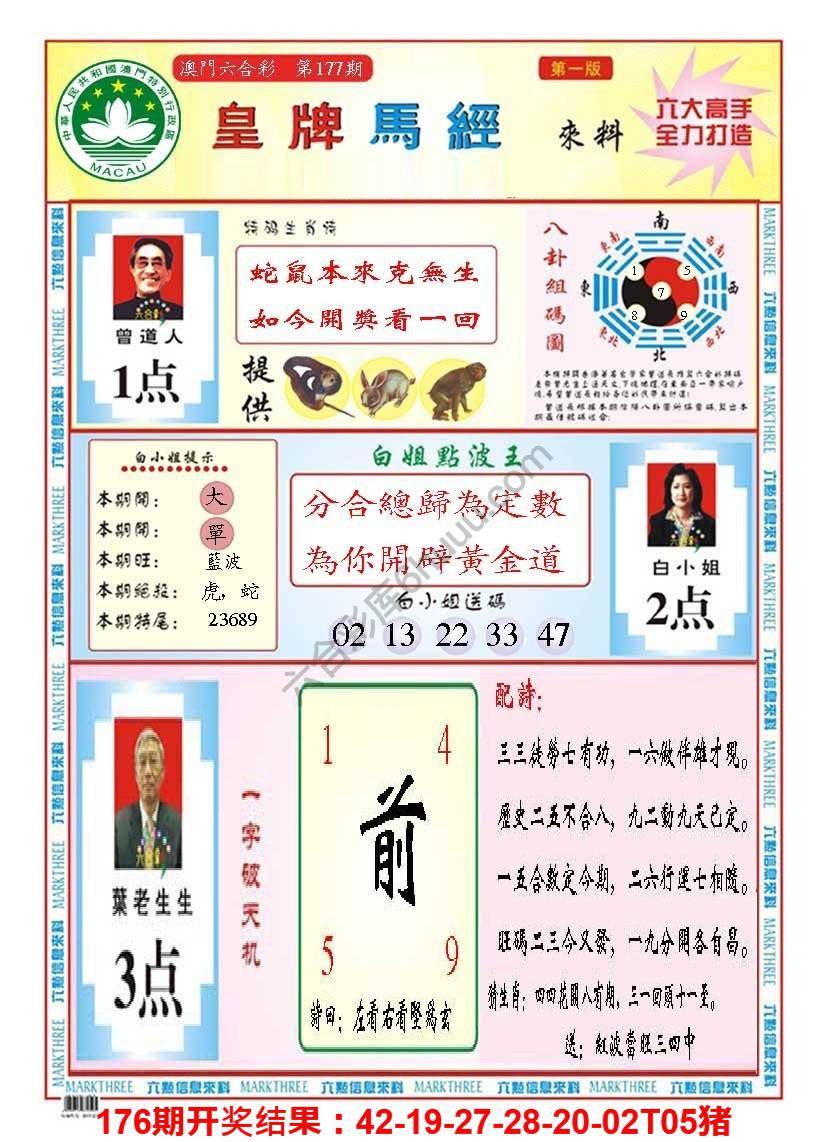 澳門六合彩 第177期
第一版
中華人民共和國澳門特別行政區
MACAU
皇牌馬經
來料
六大高手
全力打造
特碼生肖詩
蛇鼠本來克無生
如今開獎看一回
提供
曾道人
1点
八卦組碼圖
南
東南
西南
東
西
東北
西北
北
1
5
7
8
9
白小姐提示
本期開： 大
本期開： 單
本期旺： 藍波
本期絕殺： 虎，蛇
本期特尾： 23689
白姐點波王
分合總歸為定數
為你開辟黃金道
白小姐送碼
02 13 22 33 47
白小姐
2点
葉老生生
3点
一字破天机
1 4
前
5 9
詩曰：左看右看墜為玄
配詩：
三三徒勞七有功，一六做伴雄才現。
歷史二五不合八，九二動九天已定。
一五合數定今期，二六行運七相隨。
旺碼二三今又發，一九分開各自昌。
猜生肖：四四花園八有期，三一回頭十一至。
送：紅波當旺三四中
六點信息來料 MARKTHREE
六合彩库6huuu.com
176期开奖结果：42-19-27-28-20-02T05猪